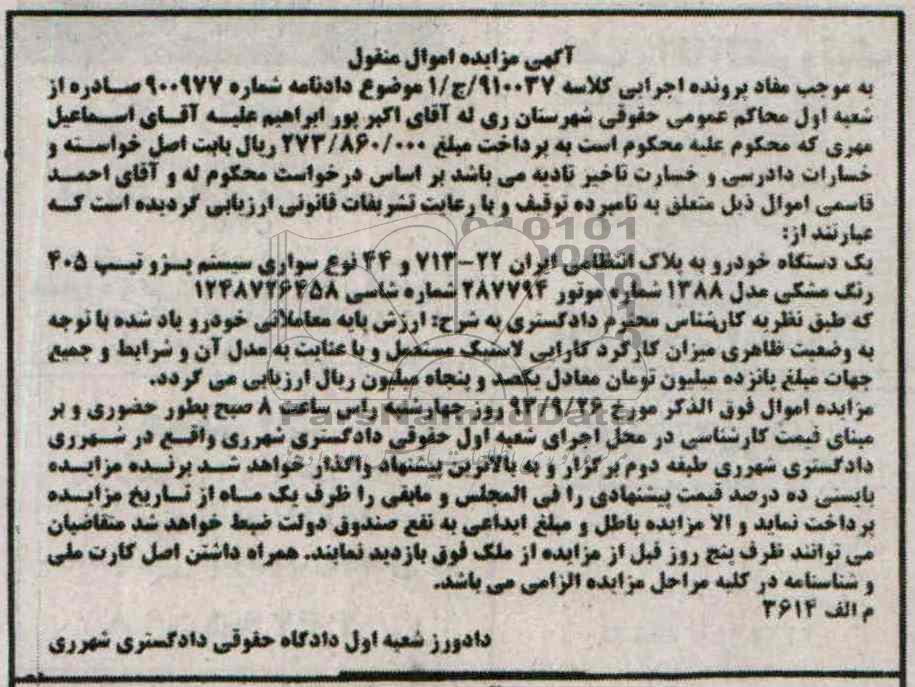 آگهی مزایده اموال منقول
به موجب مفاد پرونده اجرایی کلاسه ۹۱۰۰۳۷/ج/۱ موضوع دادنامه شماره ۹۰۰۹۷۷ صادره از
شعبه اول محاکم عمومی حقوقی شهرستان ری له آقای اکبر پور ابراهیم علیه آقای اسماعیل
مهری که محکوم علیه محکوم است به پرداخت مبلغ ۲۷۳/۸۶۰/۰۰۰ ریال بابت اصل خواسته و
خسارات دادرسی و خسارت تاخیر تادیه می باشد بر اساس درخواست محکوم له و آقای احمد
قاسمی اموال ذیل متعلق به نامبرده توقیف و با رعایت تشریفات قانونی ارزیابی گردیده است که
عبارتند از:
یک دستگاه خودرو به پلاک انتظامی ایران ۲۲-۷۱۳ و ۴۴ نوع سواری سیستم پژو تیپ ۴۰۵
رنگ مشکی مدل ۱۳۸۸ شماره موتور ۲۸۷۷۹۴ شماره شاسی ۱۲۴۸۷۲۶۴۵۸
که طبق نظریه کارشناس محترم دادگستری به شرح: ارزش پایه معاملاتی خودرو یاد شده با توجه
به وضعیت ظاهری میزان کارکرد کارایی لاستیک مستعمل و با عنایت به مدل آن و شرایط و جمیع
جهات مبلغ پانزده میلیون تومان معادل یکصد و پنجاه میلیون ریال ارزیابی می گردد.
مزایده اموال فوق الذکر مورخ ۹۳/۹/۲۶ روز چهارشنبه راس ساعت ۸ صبح بطور حضوری و بر
مبنای قیمت کارشناسی در محل اجرای شعبه اول حقوقی دادگستری شهرری واقع در شهرری
دادگستری شهرری طبقه دوم برگزار و به بالاترین پیشنهاد واگذار خواهد شد برنده مزایده
بایستی ده درصد قیمت پیشنهادی را فی المجلس و مابقی را ظرف یک ماه از تاریخ مزایده
پرداخت نماید و الا مزایده باطل و مبلغ ابداعی به نفع صندوق دولت ضبط خواهد شد متقاضیان
می توانند ظرف پنج روز قبل از مزایده از ملک فوق بازدید نمایند. همراه داشتن اصل کارت ملی
و شناسنامه در کلیه مراحل مزایده الزامی می باشد.
م الف ۳۶۱۴
دادورز شعبه اول دادگاه حقوقی دادگستری شهرری
ParsNamadData